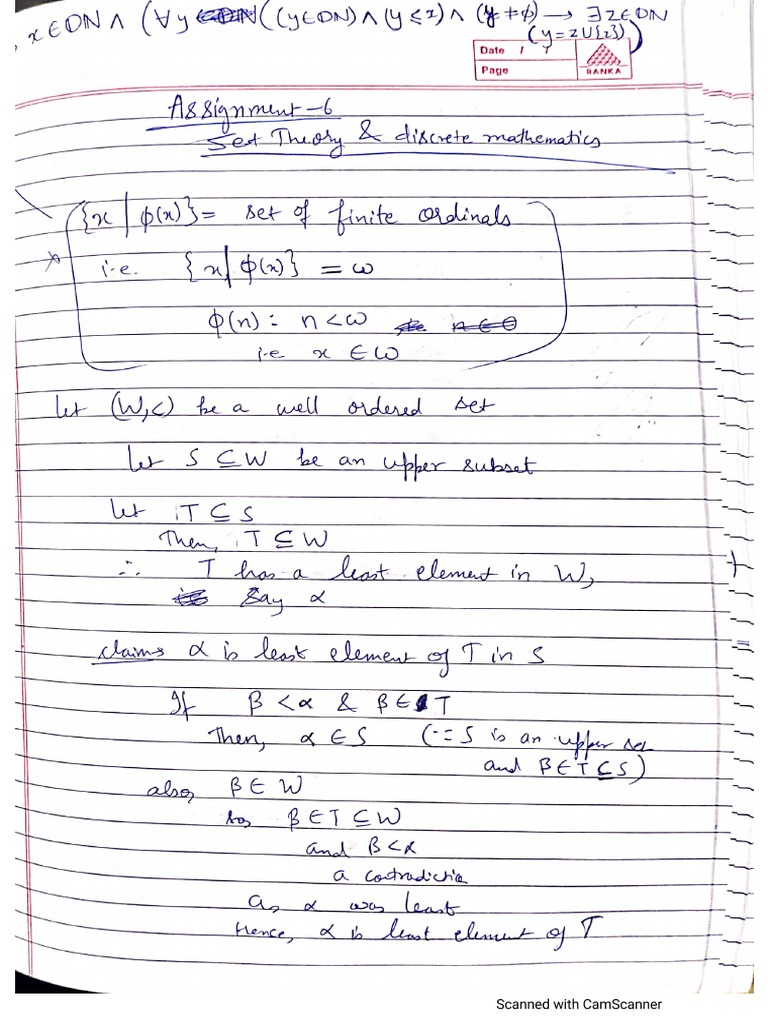 , x ∈ ON ∧ (∀y ((y∈ON) ∧ (y ≤ x) ∧ (y ≠ φ) → ∃z∈ON
(y = z∪{z}))
Date / /
Page
RANKA
Assignment-6
Set Theory & discrete mathematics
{x | φ(x)} = set of finite ordinals
i.e. {x | φ(x)} = ω
φ(n) : n < ω
i.e x ∈ ω
let (W,<) be a well ordered set
let S ⊆ W be an upper subset
let T ⊆ S
Then, T ⊆ W
∴ T has a least element in W,
Say α
claim α is least element of T in S
If β < α & β ∈ T
Then, α ∈ S (∵ S is an upper set
and β ∈ T ⊆ S)
also, β ∈ W
as β ∈ T ⊆ W
and β < α
a contradiction
as α was least
Hence, α is least element of T
Scanned with CamScanner